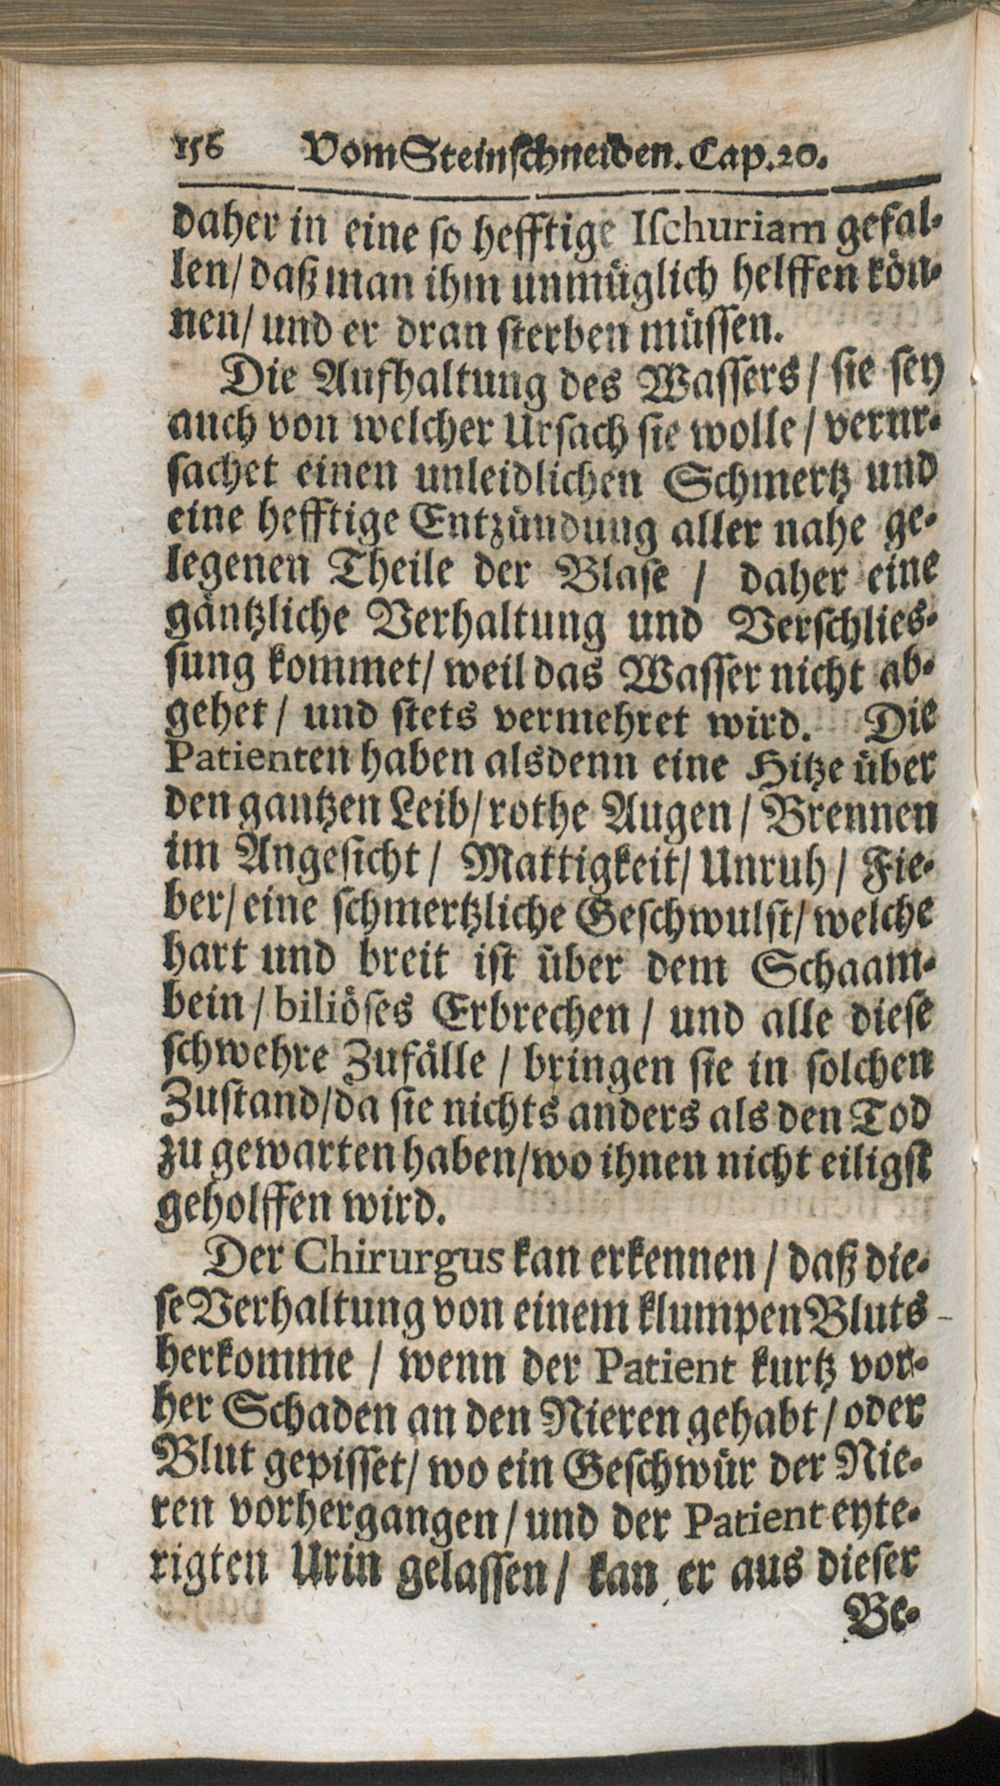 156 Vom Steinschneiden. Cap. 20.
daher in eine so hefftige Ischuriam gefal-
len/ daß man ihm unmüglich helffen kön-
nen/ und er dran sterben müssen.
Die Aufhaltung des Wassers / sie sey
auch von welcher Ursach sie wolle / verur-
sachet einen unleidlichen Schmertz und
eine hefftige Entzündung aller nahe ge-
legenen Theile der Blase / daher eine
gäntzliche Verhaltung und Verschlies-
sung kommet/ weil das Wasser nicht ab-
gehet / und stets vermehret wird. Die
Patienten haben alsdenn eine Hitze über
den gantzen Leib/ rothe Augen / Brennen
im Angesicht / Mattigkeit/ Unruh / Fie-
ber/ eine schmertzliche Geschwulst/ welche
hart und breit ist über dem Schaam-
bein / biliöses Erbrechen / und alle diese
schwehre Zufälle / bringen sie in solchen
Zustand/ da sie nichts anders als den Tod
zu gewarten haben/ wo ihnen nicht eiligst
geholffen wird.
Der Chirurgus kan erkennen / daß die-
se Verhaltung von einem klumpen Bluts
herkomme / wenn der Patient kurtz vor-
her Schaden an den Nieren gehabt / oder
Blut gepisset/ wo ein Geschwür der Nie-
ren vorhergangen / und der Patient eyte-
rigten Urin gelassen / kan er aus dieser
Be-